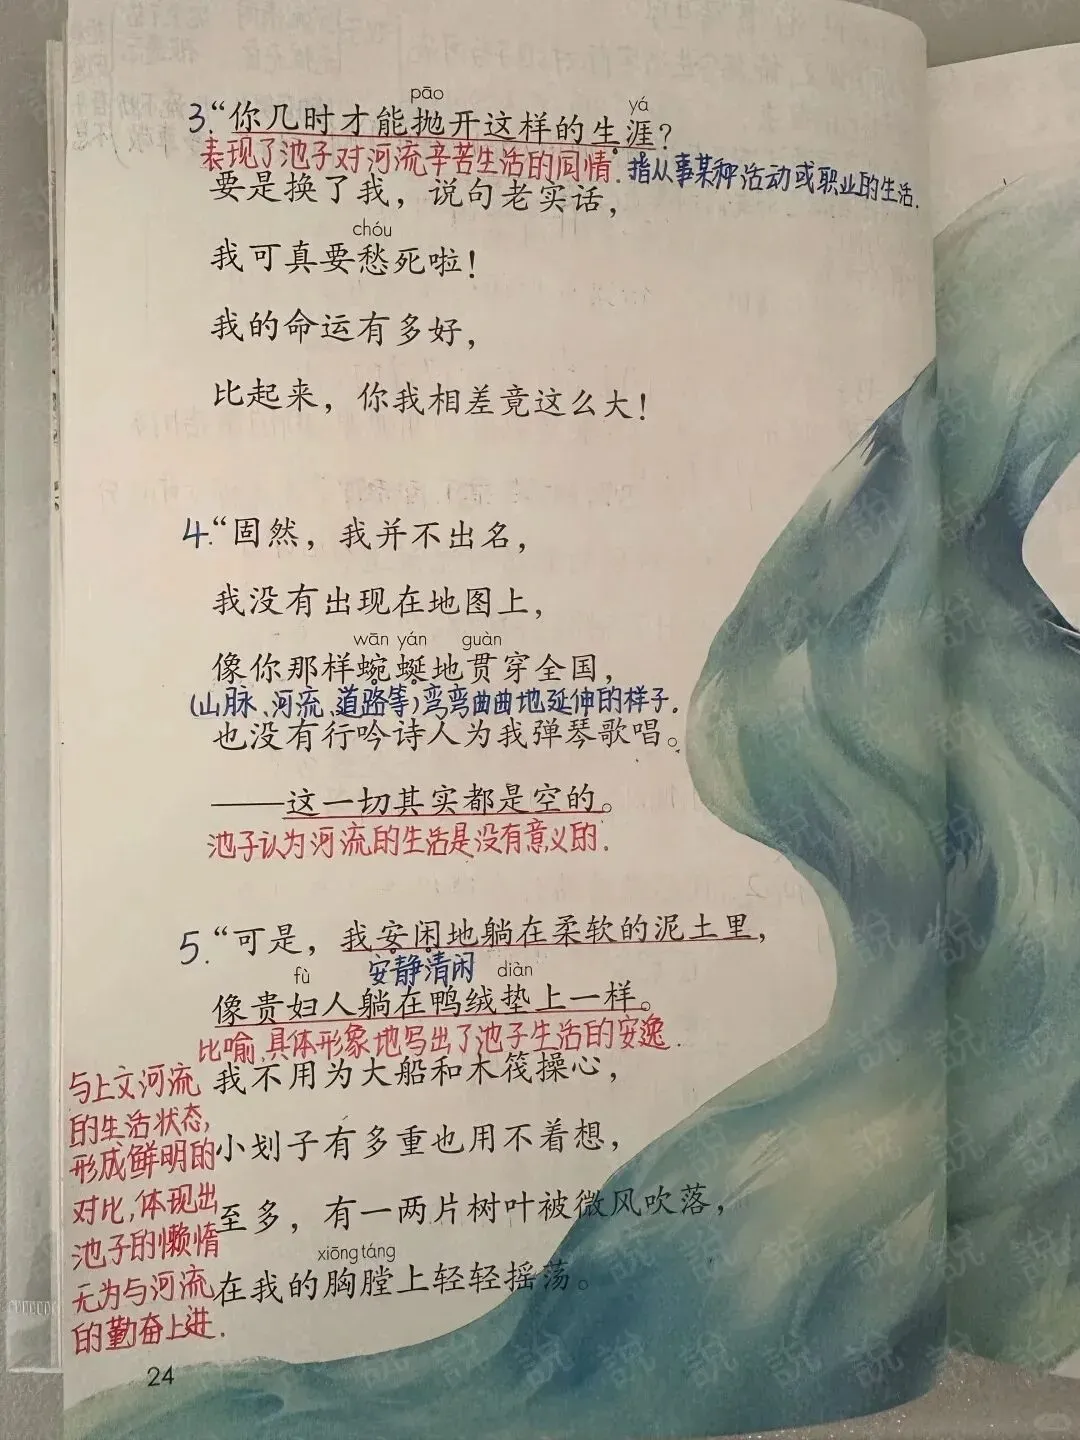 pāo yá
3.“你几时才能抛开这样的生涯？
表现了池子对河流辛苦生活的同情. 指从事某种活动或职业的生活.
要是换了我，说句老实话，
chóu
我可真要愁死啦！
我的命运有多好，
比起来，你我相差竟这么大！
4.“固然，我并不出名，
我没有出现在地图上，
wān yán guàn
像你那样蜿蜒地贯穿全国，
(山脉、河流、道路等)弯弯曲曲地延伸的样子.
也没有行吟诗人为我弹琴歌唱。
——这一切其实都是空的。
池子认为河流的生活是没有意义的.
5.“可是，我安闲地躺在柔软的泥土里，
安静清闲
fù diàn
像贵妇人躺在鸭绒垫上一样。
比喻,具体形象地写出了池子生活的安逸.
我不用为大船和木筏操心，
小划子有多重也用不着想，
至多，有一两片树叶被微风吹落，
xiōng táng
在我的胸膛上轻轻摇荡。
与上文河流
的生活状态,
形成鲜明的
对比,体现出
池子的懒惰
无为与河流
的勤奋上进.
24